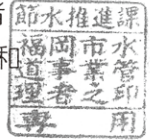 者
和
節水推進課
福岡市水
道事業管
理者之印
専用